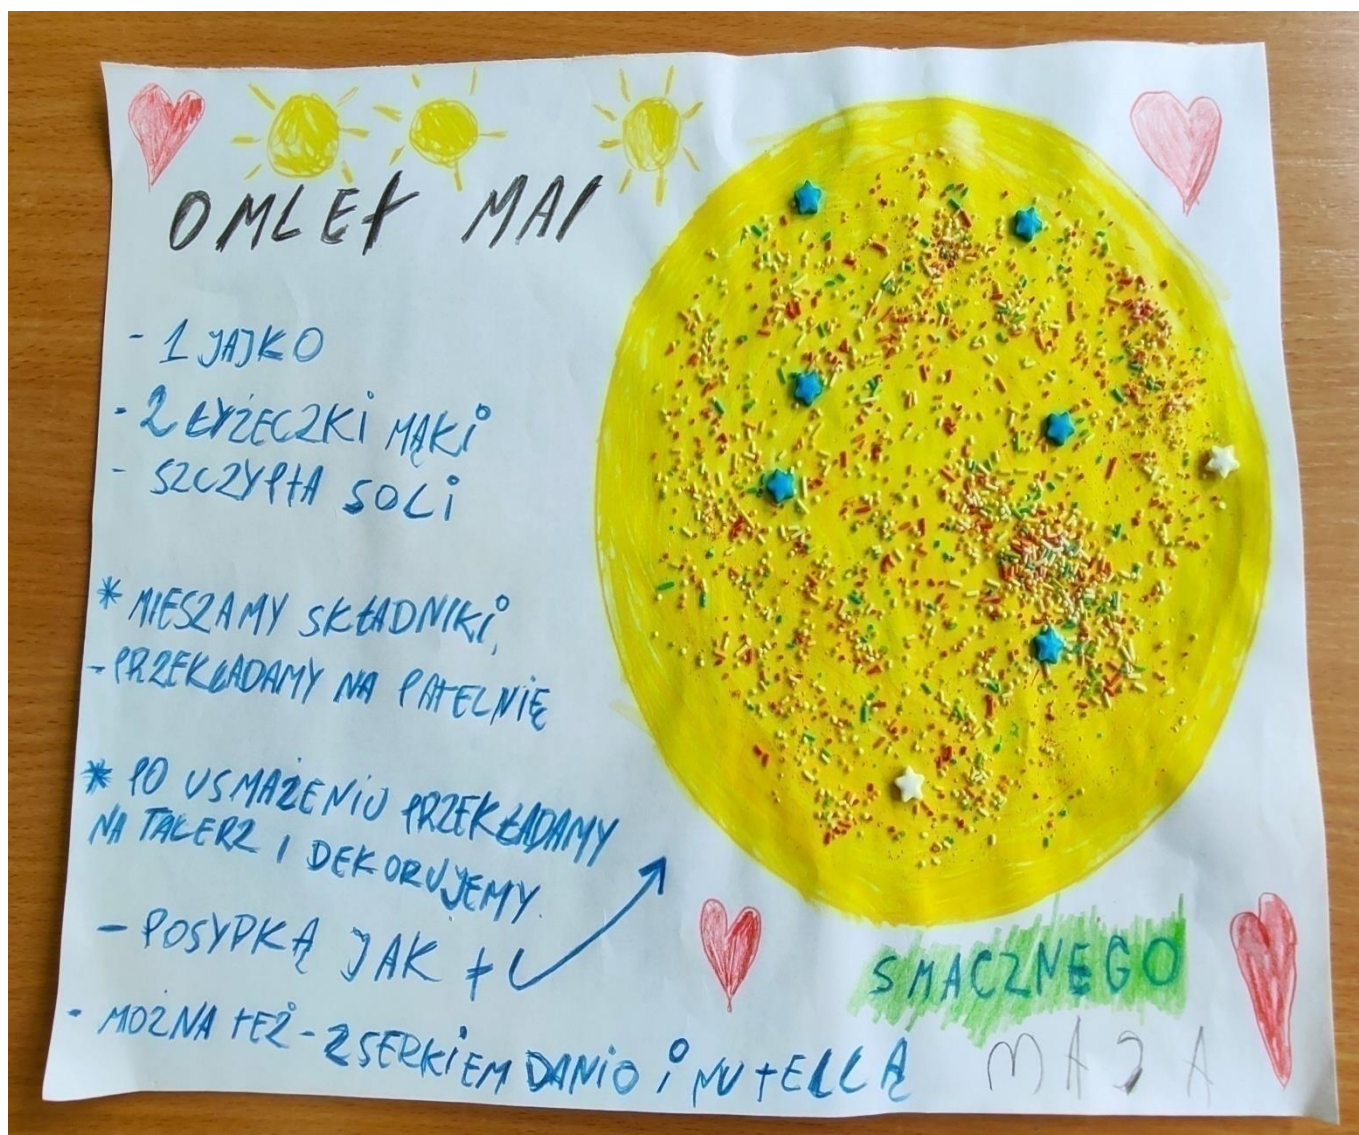 OMLET MAI
- 1 JAJKO
- 2 ŁYŻECZKI MĄKI
- SZCZYPTA SOLI
* MIESZAMY SKŁADNIKI,
- PRZEKŁADAMY NA PATELNIĘ
* PO USMAŻENIU PRZEKŁADAMY
NA TALERZ I DEKORUJEMY.
- POSYPKĄ JAK TU
- MOŻNA TEŻ - Z SERKIEM DANIO i NUTELLĄ
SMACZNEGO
MAJA